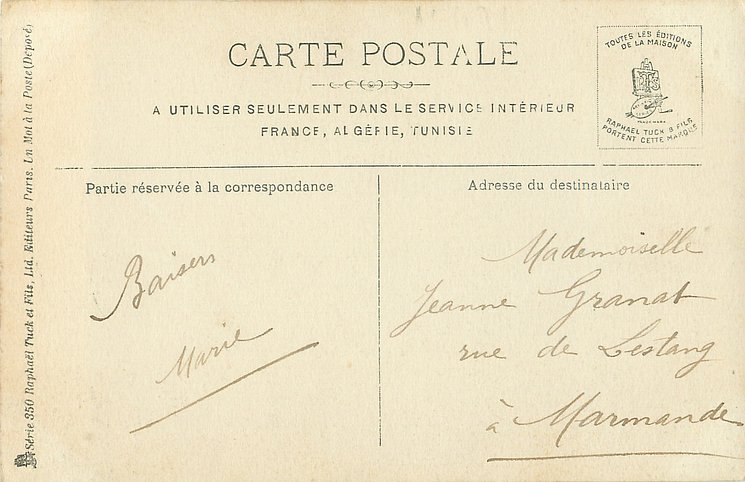 CARTE POSTALE
A UTILISER SEULEMENT DANS LE SERVICE INTÉRIEUR
FRANCE, ALGÉRIE, TUNISIE
TOUTES LES ÉDITIONS
DE LA MAISON
RAPHAEL TUCK & FILS
PORTENT CETTE MARQUE
Partie réservée à la correspondance
Adresse du destinataire
Baisers
Marie
Mademoiselle
Jeanne Granat
rue de Lestang
à Marmande
Série 350 Raphaël Tuck et Fils, Ltd. Editeurs Paris. Un Mot à la Poste (Déposé)